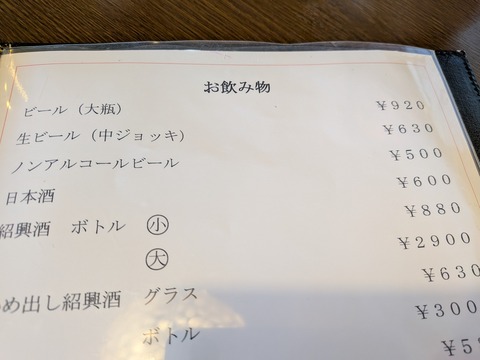 お飲み物
ビール（大瓶） ￥920
生ビール（中ジョッキ） ￥630
ノンアルコールビール ￥500
日本酒 ￥600
紹興酒 ボトル ㊙小 ￥880
大 ￥2900
め出し紹興酒 グラス ￥630
ボトル ￥300
￥5